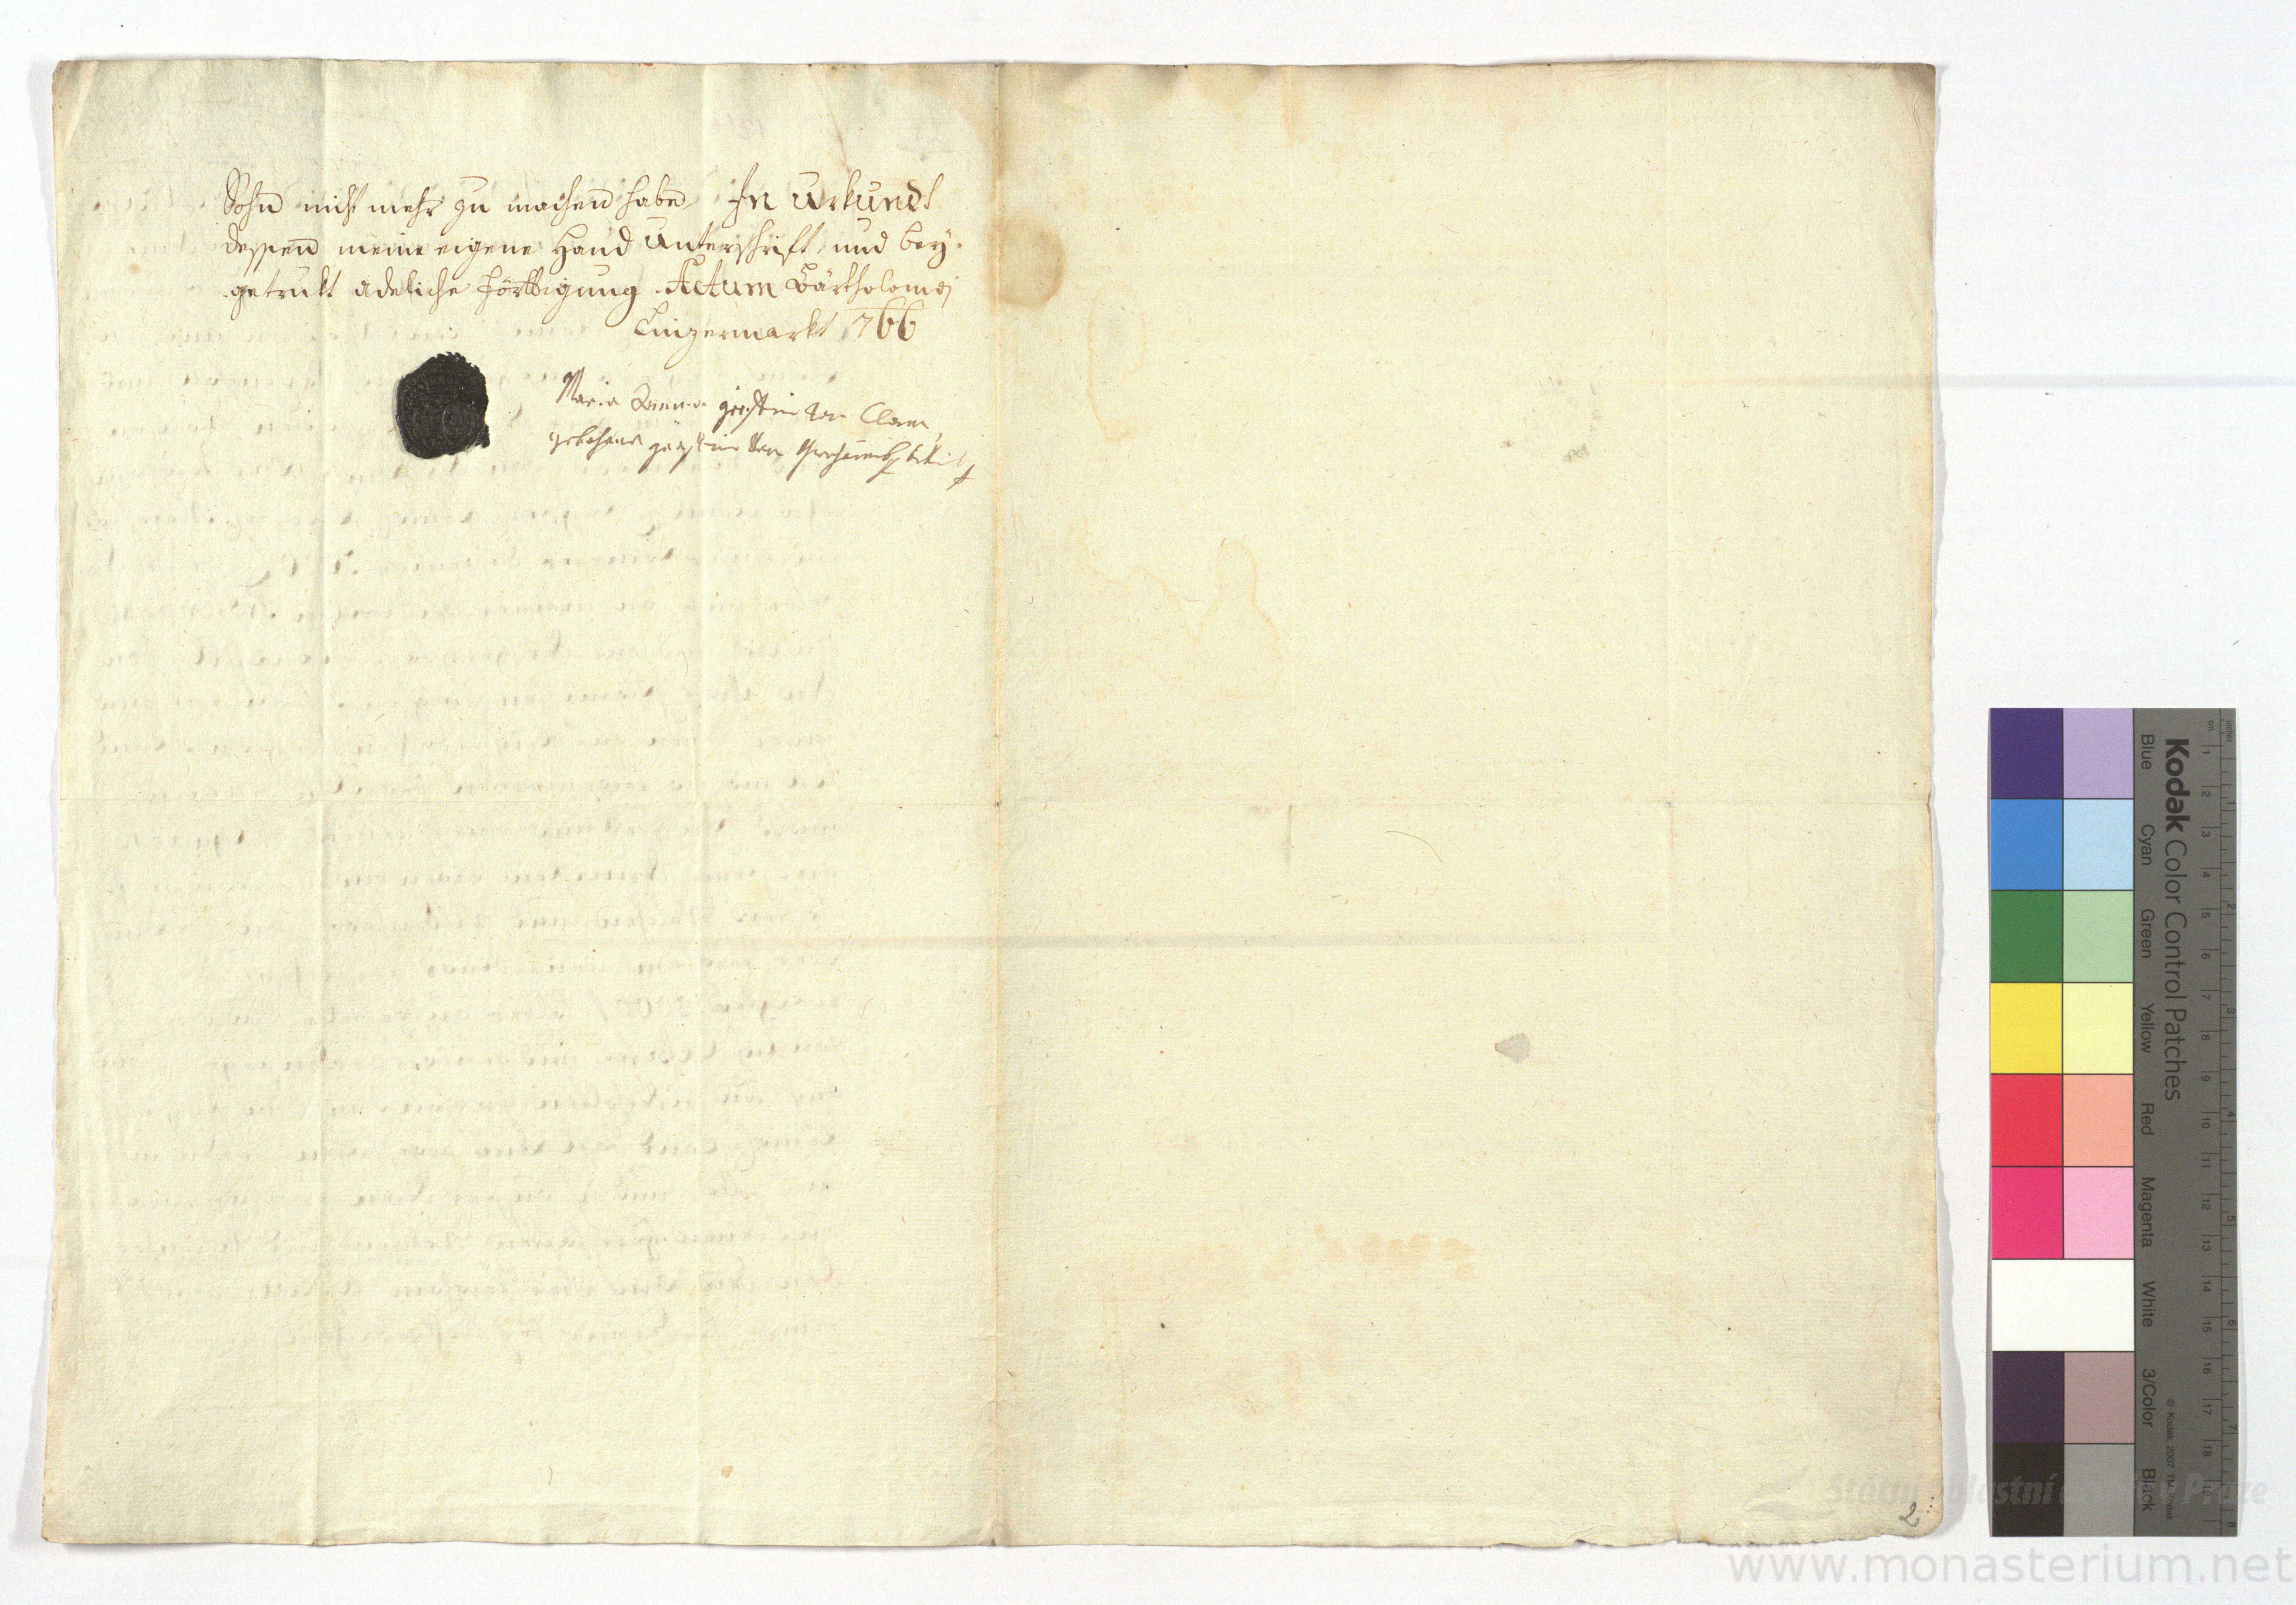 Sohn nicht mehr zu machen habe, In Urkundt
dessen meine eigene Hand Unterschrift, und bey-
getrukt adeliche Förttigung. Actum Bartholomej
Linzermarkt 766
Maria Anna gräffin von Clam,
gebohrne gräffin von
2
Kodak Color Control Patches
Blue Cyan Green Yellow Red Magenta White 3/Color Black
© Kodak, 2007 TM: Kodak
inches 1 2 3 4 5 6 7 8
cm 1 2 3 4 5 6 7 8 9 10 11 12 13 14 15 16 17 18 19
Státní oblastní archiv v Praze
www.monasterium.net